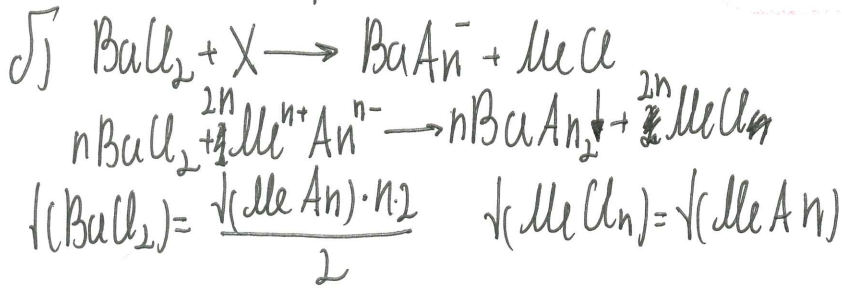 √) BaCl₂ + X ⟶ BaAn⁻ + MeCl
nBaCl₂ + 2n Meⁿ⁺Anⁿ⁻ ⟶ nBaAn₂↓ + 2n MeCl
√(BaCl₂) = √(MeAn)·n·2 / 2 √(MeClₙ) = √(MeAn)